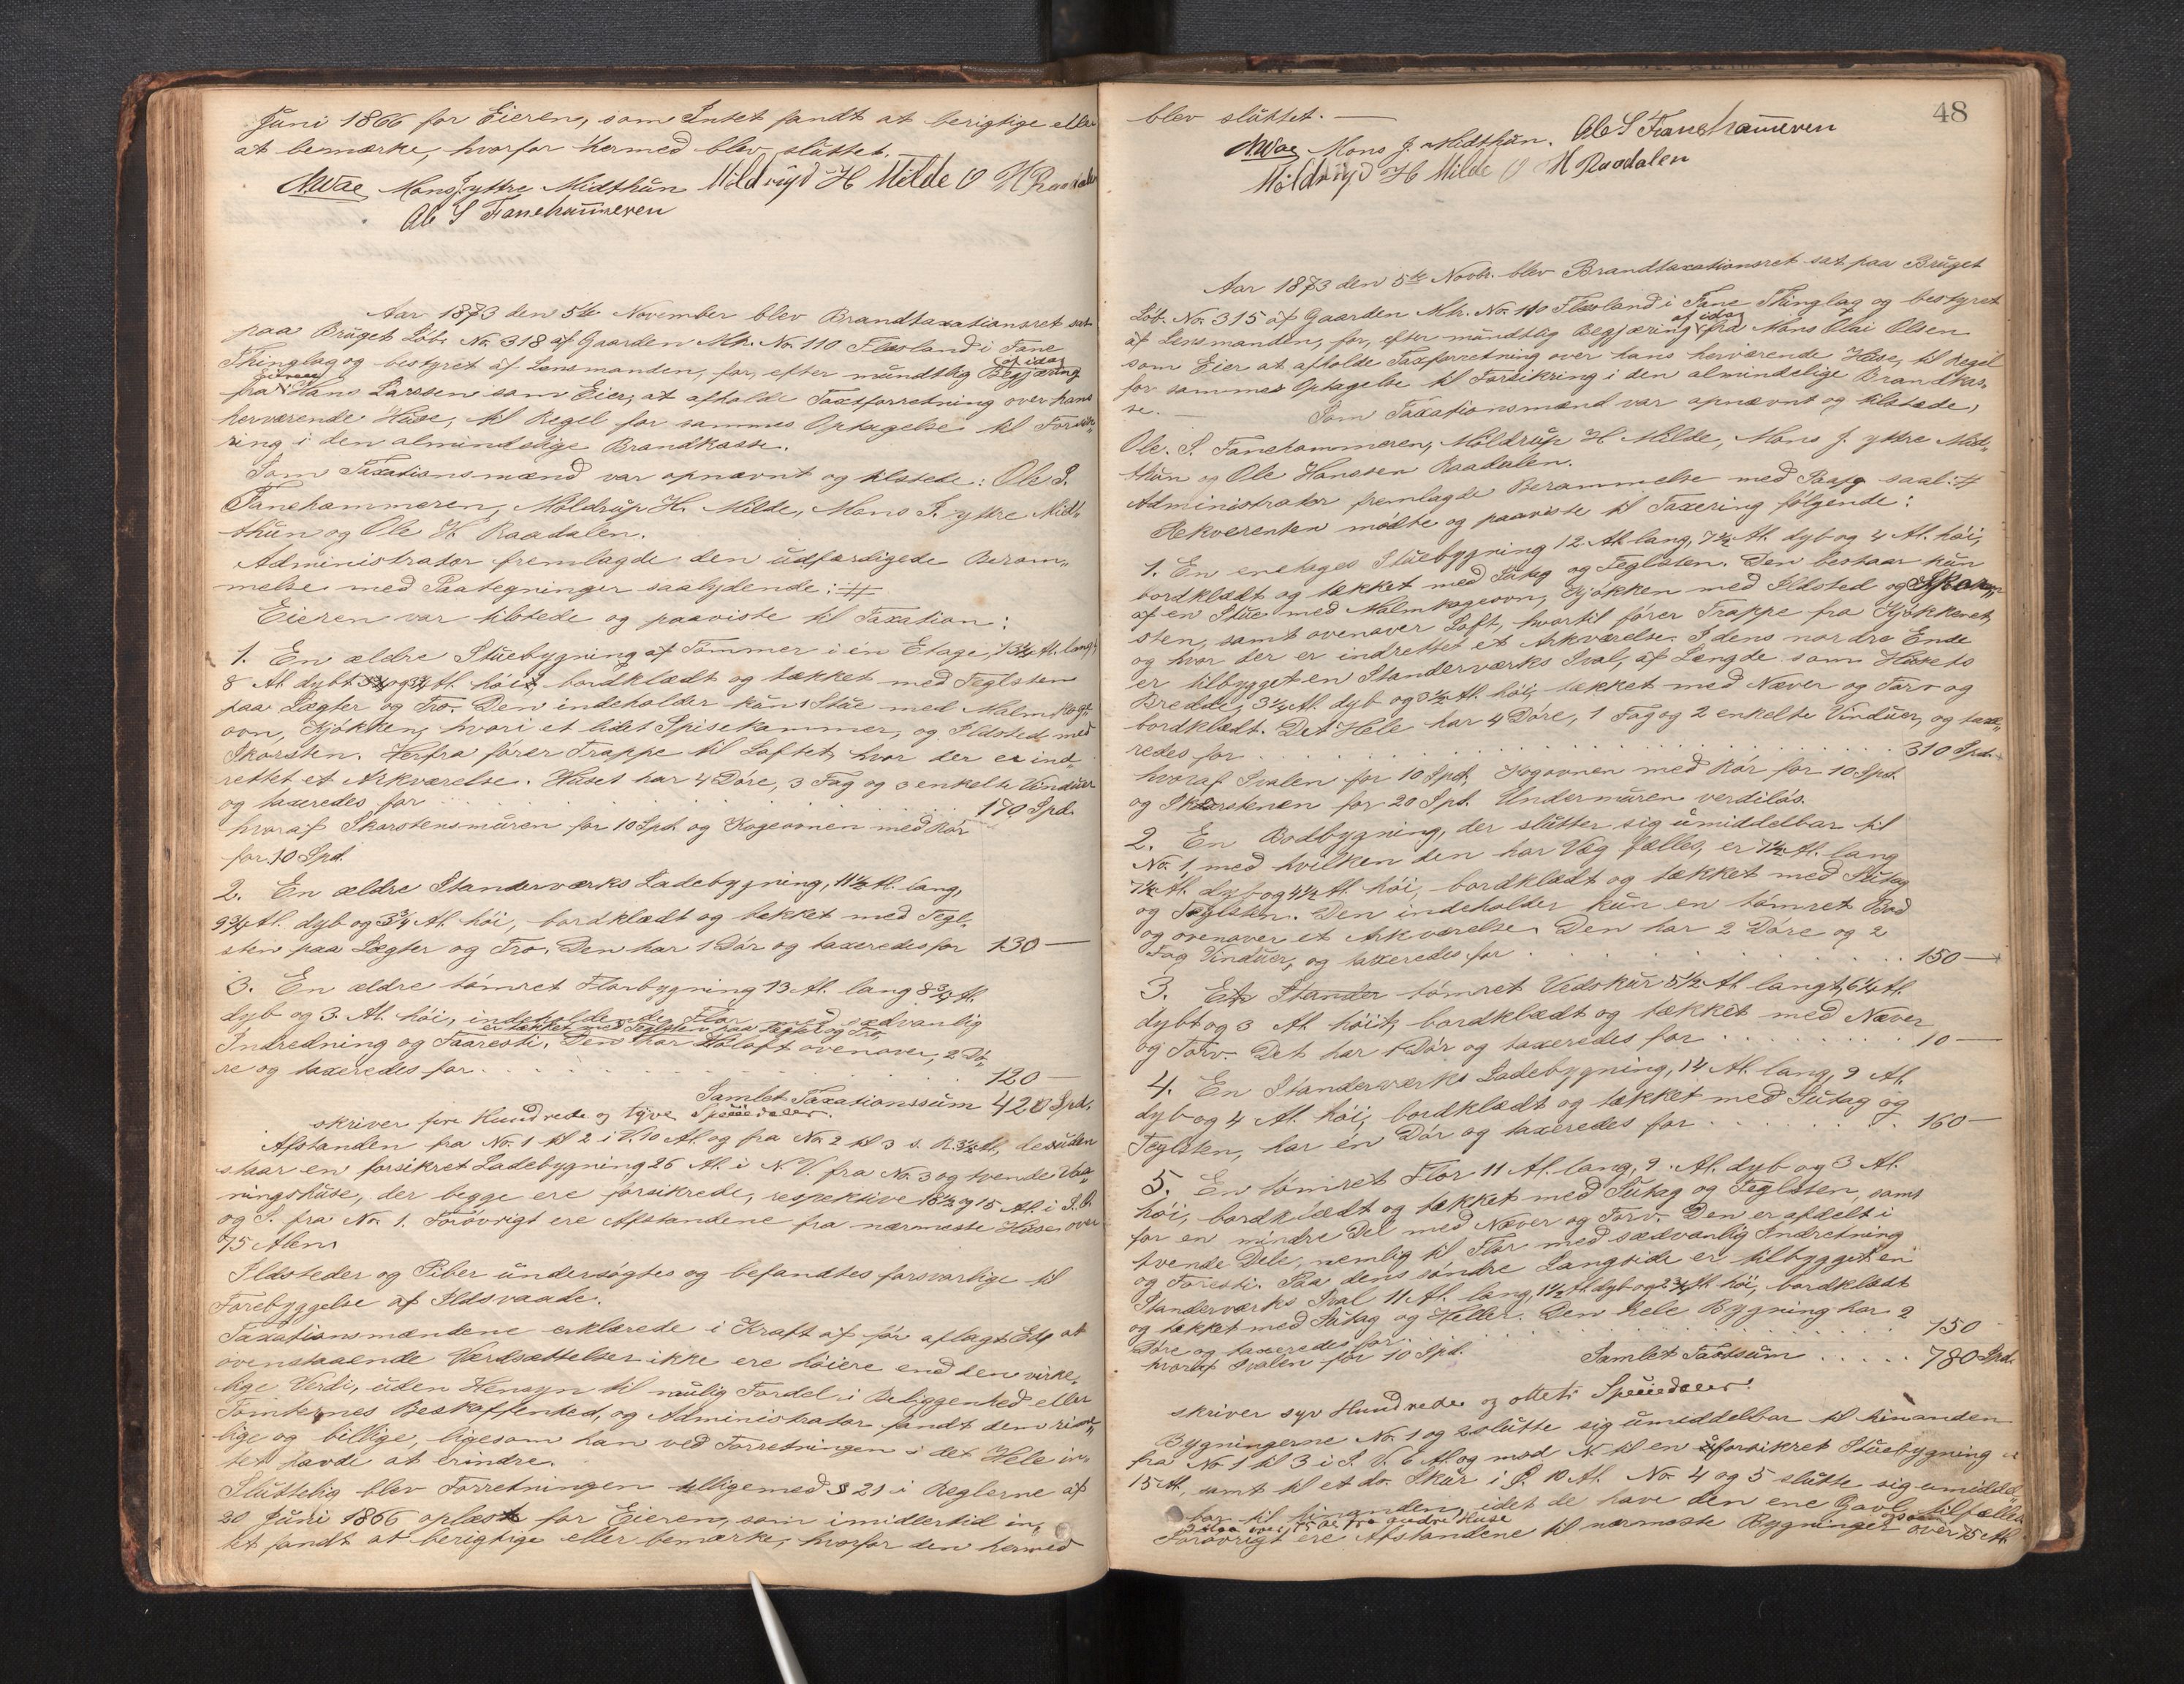 Juni 1866 for Eieren, som Intet fandt at berigtige eller
at bemærke, hvorfor hermed blev sluttet. —
NWae Mons J. yttre Midthun Möldrüp H Milde O H Raadalen
Ole S Fanehammeren
Aar 1873 den 5te November blev Brandtaxationsret sat
paa Bruget Løb. No. 318 af Gaarden Mtr. No. 110 Flesland i Fane
Thinglag og bestyret af Lensmanden, for, efter mundtlig Begjæring
af idag
fra Hans Larssen som Eier, at afholde Taxtforretning over hans
herværende Huse, til Regel for sammes Optagelse til Forsik„
ring i den almindelige Brandkasse.
Som Taxationsmænd var opnævnt og tilstede: Ole S.
Fanehammeren, Möldrup H. Milde, Mons J. yttre Midt„
thun og Ole H. Raadalen.
Administrator fremlagde den udfærdigede Beram„
melse med Paategninger saalydende: #
Eieren var tilstede og paaviste til Taxation:
1. En ældre Stuebygning af Tømmer i en Etage, 13½ Al. lang,
8 Al. dyb og Al. høi, bordklædt og tækket med Teglsten
paa Lægter og Tro. Den indeholder kun 1 Stue med Malmkoge„
ovn, Kjøkken, hvori et lidet Spisekammer, og Ildsted med
Skorsten. Herfra fører Trappe til Loftet, hvor der er ind„
rettet et Arkværelse. Huset har 4 Døre, 3 Fag og 3 enkelte Vinduer
og taxeredes for . . . 170 Spd.
hvoraf Skorstensmuren for 10 Spd. og Kogeovnen med Rør
for 10 Spd.
2. En ældre Standerværks Ladebygning, 11½ Al. lang,
9¾ Al. dyb og 3¾ Al. høi, bordklædt og tækket med Tegl„
sten paa Lægter og Tro. Den har 1 Dør og taxeredes for 130 —
3. En ældre tømret Florbygning 13 Al. lang 8¾ Al.
dyb og 3. Al. høi, indeholdende Flor med sædvanlig
er tækket med Teglsten paa Lægter og Tro,
Indredning og Faaresti. Den har Høloft ovenover, 2 Dø„
re og taxeredes for . . . 120 —
Samlet Taxationssum 420 Spd.
skriver fire Hundrede og tyve Speciedaler.
Afstanden fra No. 1 til 2 i V. 10 Al. og fra No. 2 til 3 s. Al., desuden
staar en forsikret Ladebygning 26 Al. i N.V. fra No. 3 og tvende Vaa„
ningshuse, der begge ere forsikrede, respektive 18½ og 15 Al. i S.
og S. fra No. 1. Forøvrigt ere Afstandene fra nærmeste Huse over
75 Alen.
Ildsteder og Piber undersøgtes og befandtes forsvarlige til
Forebyggelse af Ildsvaade.
Taxationsmændene erklærede i Kraft af før aflagt Ed, at
ovenstaaende Værdsættelser ikke ere høiere end den virke„
lige Verdi, uden Hensyn til mulig Fordel i Beliggenhed eller
Tomternes Beskaffenhed, og Administrator fandt dem rime„
lige og billige, ligesom han ved Forretningen i det Hele in„
tet havde at erindre.
Sluttelig blev Forretningen tilligemed § 21 i Reglerne af
20 Juni 1866 oplæst for Eieren, som imidlertid in„
tet fandt at berigtige eller bemærke, hvorfor den hermed
48
blev sluttet. —
NWae Mons J. Midthun. Ole S Fanehammeren
Möldrüp H Milde O H Raadalen
Aar 1873 den 5te Novbr. blev Brandtaxationsret sat paa Bruget
Løb. No. 315 af Gaarden Mtr. No. 110 Flesland i Fane Thinglag og bestyret
af idag
af Lensmanden, for, efter mundtlig Begjæring fra Mons Olai Olsen
som Eier at afholde Taxforretning over hans herværende Huse, til Regel
for sammes Optagelse til Forsikring i den almindelige Brandkas„
se. Som Taxationsmænd var opnævnt og tilstede,
Ole. S. Fanehammeren, Möldrup H Milde, Mons J. yttre Mid„
thun og Ole Hanssen Raadalen.
Administrator fremlagde Berammelse med Paateg saal. #
Rekverenten mødte og paaviste til Taxering følgende:
1. En enetages Stuebygning 12 Al. lang, 7½ Al. dyb og 4 Al. høi,
bordklædt og tækket med Sutag og Teglsten. Den bestaar kun
af en Stue med Malmkogeovn, Kjøkken med Ildsted og Skor„
sten, samt ovenover Loft, hvortil fører Trappe fra Kjøkkenet,
og hvor der er indrettet et Arkværelse. I dens nordre Ende
er tilbygget en Standerværks Sval, af Længde som Husets
Bredde, 3¼ Al. dyb og 3½ Al. høi, tækket med Næver og Torv og
bordklædt. Det Hele har 4 Døre, 1 Fag og 2 enkelte Vinduer, og taxe„
redes for . . . 310 Spd.
hvoraf Svalen for 10 Spd. Kogeovnen med Rør for 10 Spd.
og Skorstenen for 20 Spd. Undermuren verdiløs.
2. En Bodbygning, der slutter sig umiddelbar til
No. 1, med hvilken den har Væg fælles, er 7½ Al. lang
7¼ Al. dyb og 4½ Al. høi, bordklædt og tækket med Sutag
og Teglsten. Den indeholder kun en tømret Bod
og ovenover et Arkværelse. Den har 2 Døre og 2
Fag Vinduer, og taxeredes for . . . 150 —
3. Et Stander tømret Vedskur 5½ Al. langt, 6¼ Al.
dybt og 3 Al. høit, bordklædt og tækket med Næver
og Torv. Det har 1 Dør og taxeredes for . . . 10 —
4. En Standerværks Ladebygning, 14 Al. lang, 9 Al.
dyb og 4 Al. høi, bordklædt og tækket med Sutag og
Teglsten, har én Dør og taxeredes for . . . 160 —
5. En tømret Flor 11 Al. lang, 9. Al. dyb og 3 Al.
høi, bordklædt og tækket med Sutag og Teglsten, samt
for en mindre Del med Næver og Torv. Den er afdelt i
tvende Dele, nemlig til Flor med sædvanlig Indretning
og Foresti. Paa dens søndre Langside er tilbygget en
Standerværks Sval 11 Al. lang, 1½ Al. dyb og 2¾ Al. høi, bordklædt
og tækket med Sutag og Heller. Den hele Bygning har 2
Døre og taxeredes for . . . 150
hvoraf Svalen for 10 Spd. Samlet Taxtsum . . . . . 780 Spd.
skriver syv Hundrede og otteti Speciedaler.
Bygningerne No. 1 og 2 slutte sig umiddelbar til hinanden
fra No. 1 til 3 i S. V. 6 Al. og mod N. til en uforsikret Stuebygning er
15 Al., samt til et do. Skur i Ø. 10 Al. No. 4 og 5 slutte sig umiddel„
bar til hinanden, idet de have den ene Gavl tilfælles
og staa over 75 Al. fra andre Huse
Forøvrigt ere Afstandene til nærmeste Bygninger over 75 Al.